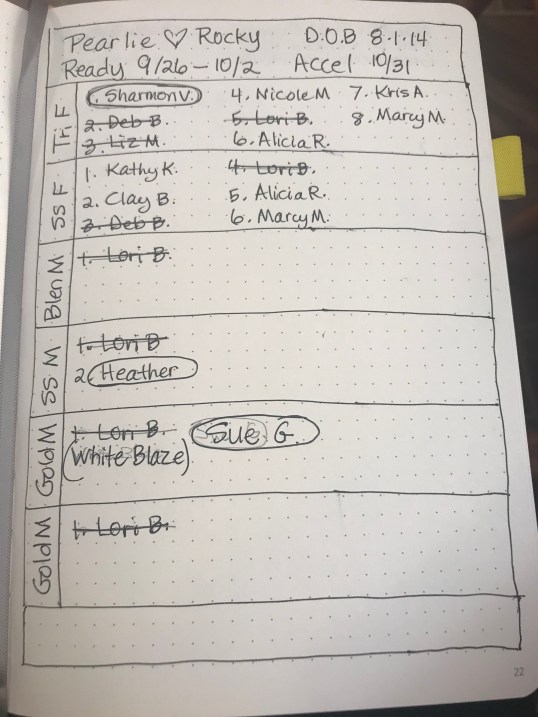 Pearlie ♡ Rocky D.O.B 8.1.14
Ready 9/26 - 10/2 Accel 10/31
Tri F
1. Sharmon V. 4. Nicole M 7. Kris A.
2. Deb B. 5. Lori B. 8. Marcy M.
3. Liz M. 6. Alicia R.
SS F
1. Kathy K. 4. Lori B.
2. Clay B. 5. Alicia R.
3. Deb B. 6. Marcy M.
Blen M
1. Lori B.
SS M
1. Lori B
2. Heather
Gold M
1. Lori B. Sue G.
(White Blaze)
Gold M
1. Lori B.
22